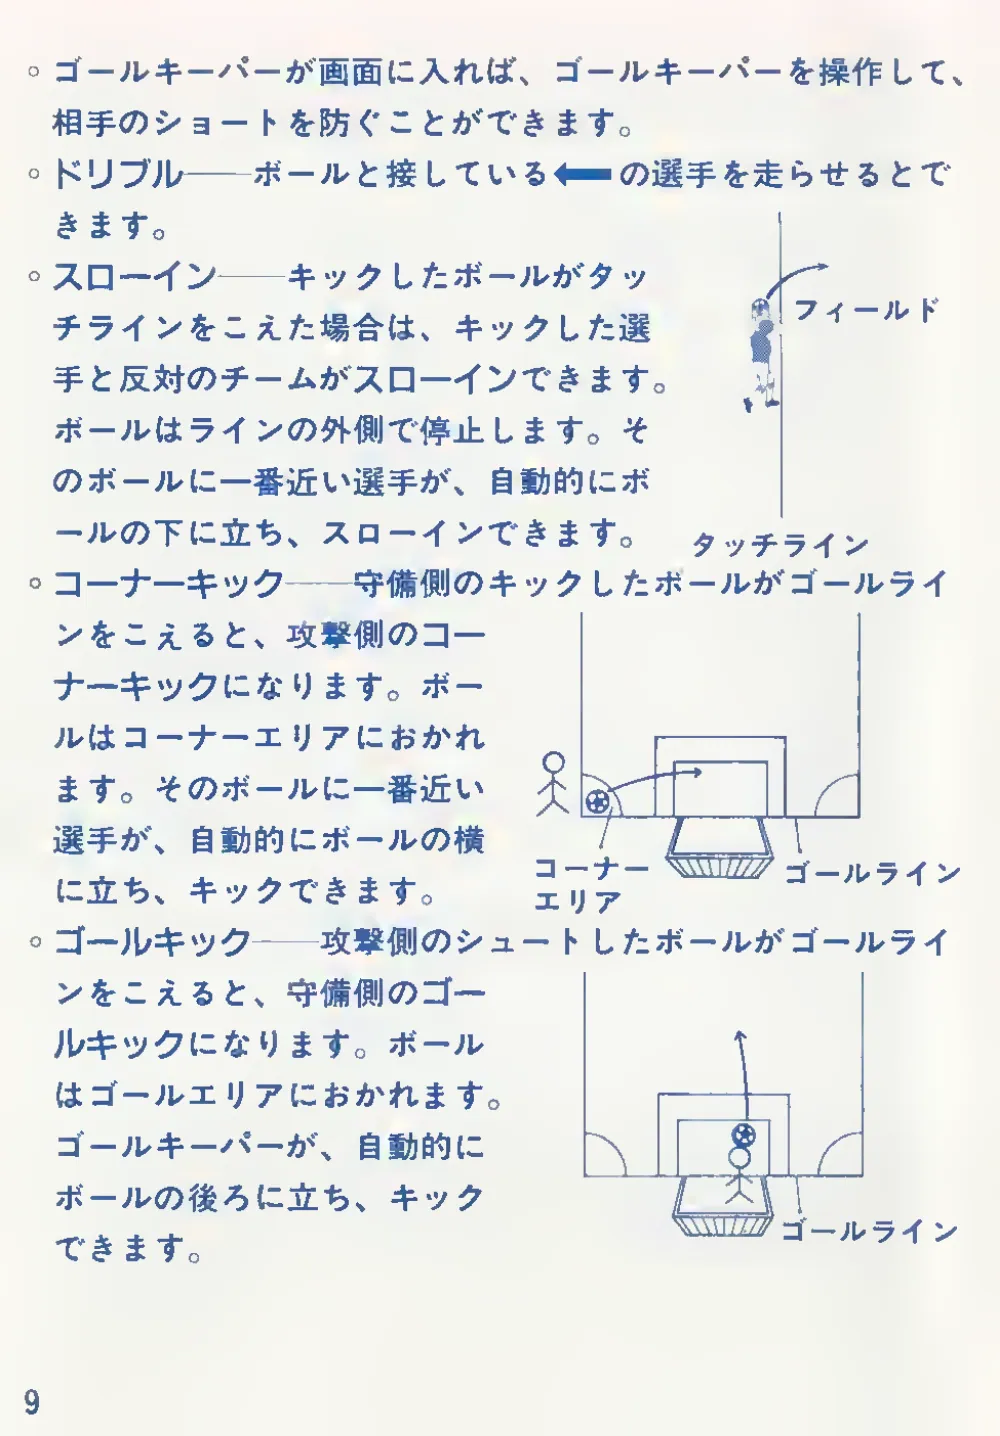 ◦ ゴールキーパーが画面に入れば、ゴールキーパーを操作して、
相手のショートを防ぐことができます。
◦ ドリブル──ボールと接している⬅の選手を走らせるとで
きます。
◦ スローイン──キックしたボールがタッ
チラインをこえた場合は、キックした選
手と反対のチームがスローインできます。
ボールはラインの外側で停止します。そ
のボールに一番近い選手が、自動的にボ
ールの下に立ち、スローインできます。
フィールド
タッチライン
◦ コーナーキック──守備側のキックしたボールがゴールライ
ンをこえると、攻撃側のコー
ナーキックになります。ボー
ルはコーナーエリアにおかれ
ます。そのボールに一番近い
選手が、自動的にボールの横
に立ち、キックできます。
コーナー
エリア
ゴールライン
◦ ゴールキック──攻撃側のシュートしたボールがゴールライ
ンをこえると、守備側のゴー
ルキックになります。ボール
はゴールエリアにおかれます。
ゴールキーパーが、自動的に
ボールの後ろに立ち、キック
できます。
ゴールライン
9